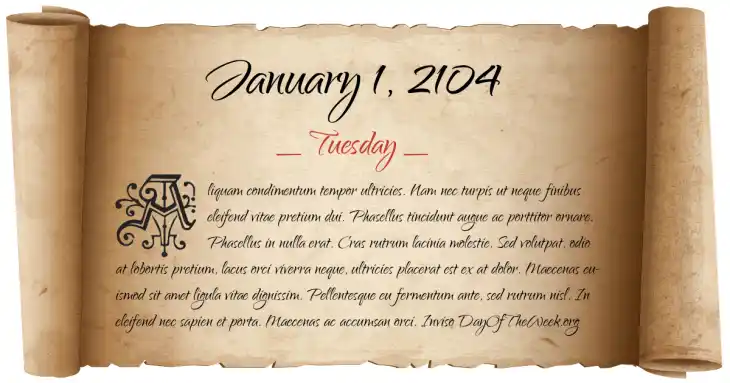 January 1, 2104
__ Tuesday __
Aliquam condimentum tempor ultricies. Nam nec turpis ut neque finibus
eleifend vitae pretium dui. Phasellus tincidunt augue ac porttitor ornare.
Phasellus in nulla erat. Cras rutrum lacinia molestie. Sed volutpat, odio
at lobortis pretium, lacus orci viverra neque, ultricies placerat est ex at dolor. Maecenas eu-
ismod sit amet ligula vitae dignissim. Pellentesque eu fermentum ante, sed rutrum nisl. In
eleifend nec sapien et porta. Maecenas ac accumsan orci. Inviso DayOfTheWeek.org